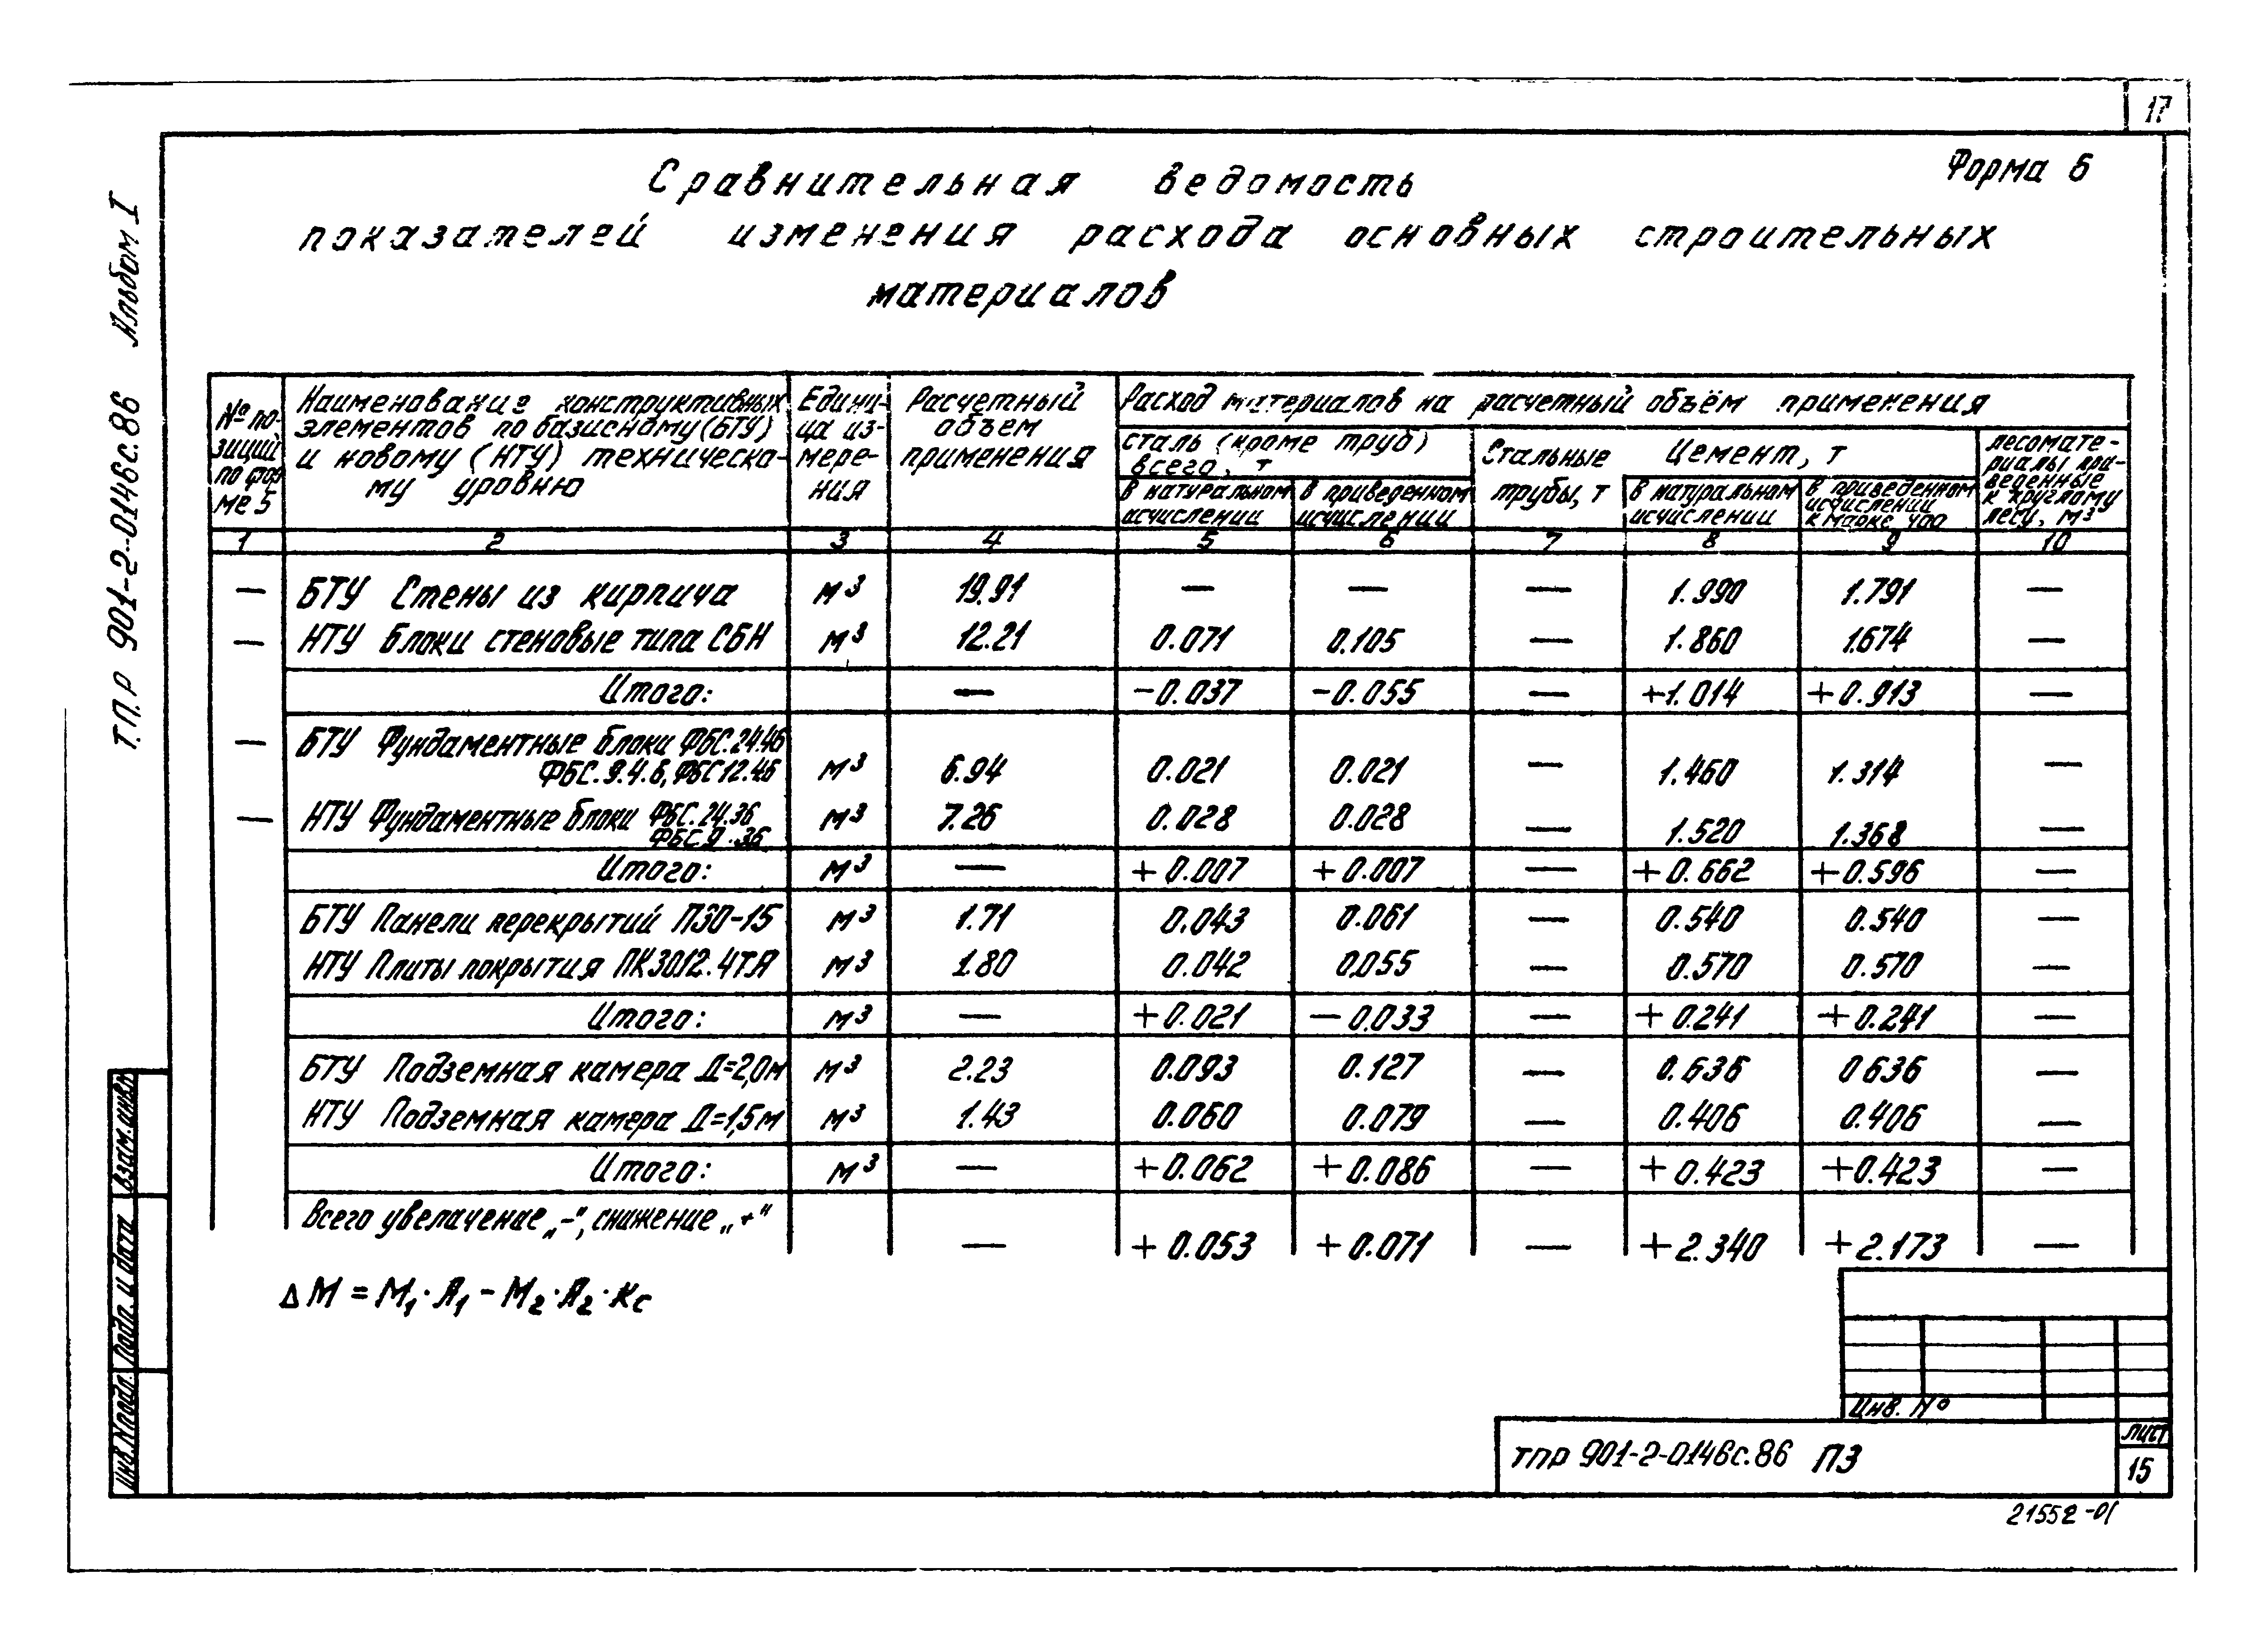 17
Форма 6
Сравнительная ведомость
показателей изменения расхода основных строительных
материалов
Т.П.Р 901-2-0146с.86 Альбом I
№ по-
зиций
по фор
ме 5
Наименования конструктивных
элементов по базисному (БТУ)
и новому (НТУ) техническо-
му уровню
Едини-
ца из-
мере-
ния
Расчетный
объем
применения
Расход материалов на расчетный объём применения
сталь (кроме труб)
всего, т
в натуральном
исчислении
в приведенном
исчислении
Стальные
трубы, т
Цемент, т
в натуральном
исчислении
в приведенном
исчислении
к марке 400
лесомате-
риалы при-
веденные
к круглому
лесу, м³
1 2 3 4 5 6 7 8 9 10
— БТУ Стены из кирпича м³ 19.91 — — — 1.990 1.791 —
— НТУ Блоки стеновые типа СБН м³ 12.21 0.071 0.105 — 1.860 1.674 —
Итого: — -0.037 -0.055 — +1.014 +0.913 —
— БТУ Фундаментные блоки ФБС.24.46
ФБС.9.4.6, ФБС12.46 м³ 6.94 0.021 0.021 — 1.460 1.314 —
— НТУ Фундаментные блоки ФБС.24.36 м³ 7.26 0.028 0.028 — 1.520 1.368 —
ФБС.9.36
Итого: м³ — +0.007 +0.007 — +0.662 +0.596 —
БТУ Панели перекрытий П30-15 м³ 1.71 0.043 0.061 — 0.540 0.540 —
НТУ Плиты покрытия ПК3012.4ТА м³ 1.80 0.042 0.055 — 0.570 0.570 —
Итого: м³ — +0.021 -0.033 — +0.241 +0.241 —
БТУ Подземная камера Д=2,0м м³ 2.23 0.093 0.127 — 0.636 0636 —
НТУ Подземная камера Д=1,5м м³ 1.43 0.060 0.079 — 0.406 0.406 —
Итого: м³ — +0.062 +0.086 — +0.423 +0.423 —
Всего увеличение „-“, снижение „+“
— +0.053 +0.071 — +2.340 +2.173 —
ΔМ = М₁·А₁ - М₂·А₂·кс
Взам.инв№
Подп. и дата
Инв.№подл.
Инв. №
ТПР 901-2-0146с.86 ПЗ
лист
15
21552-01